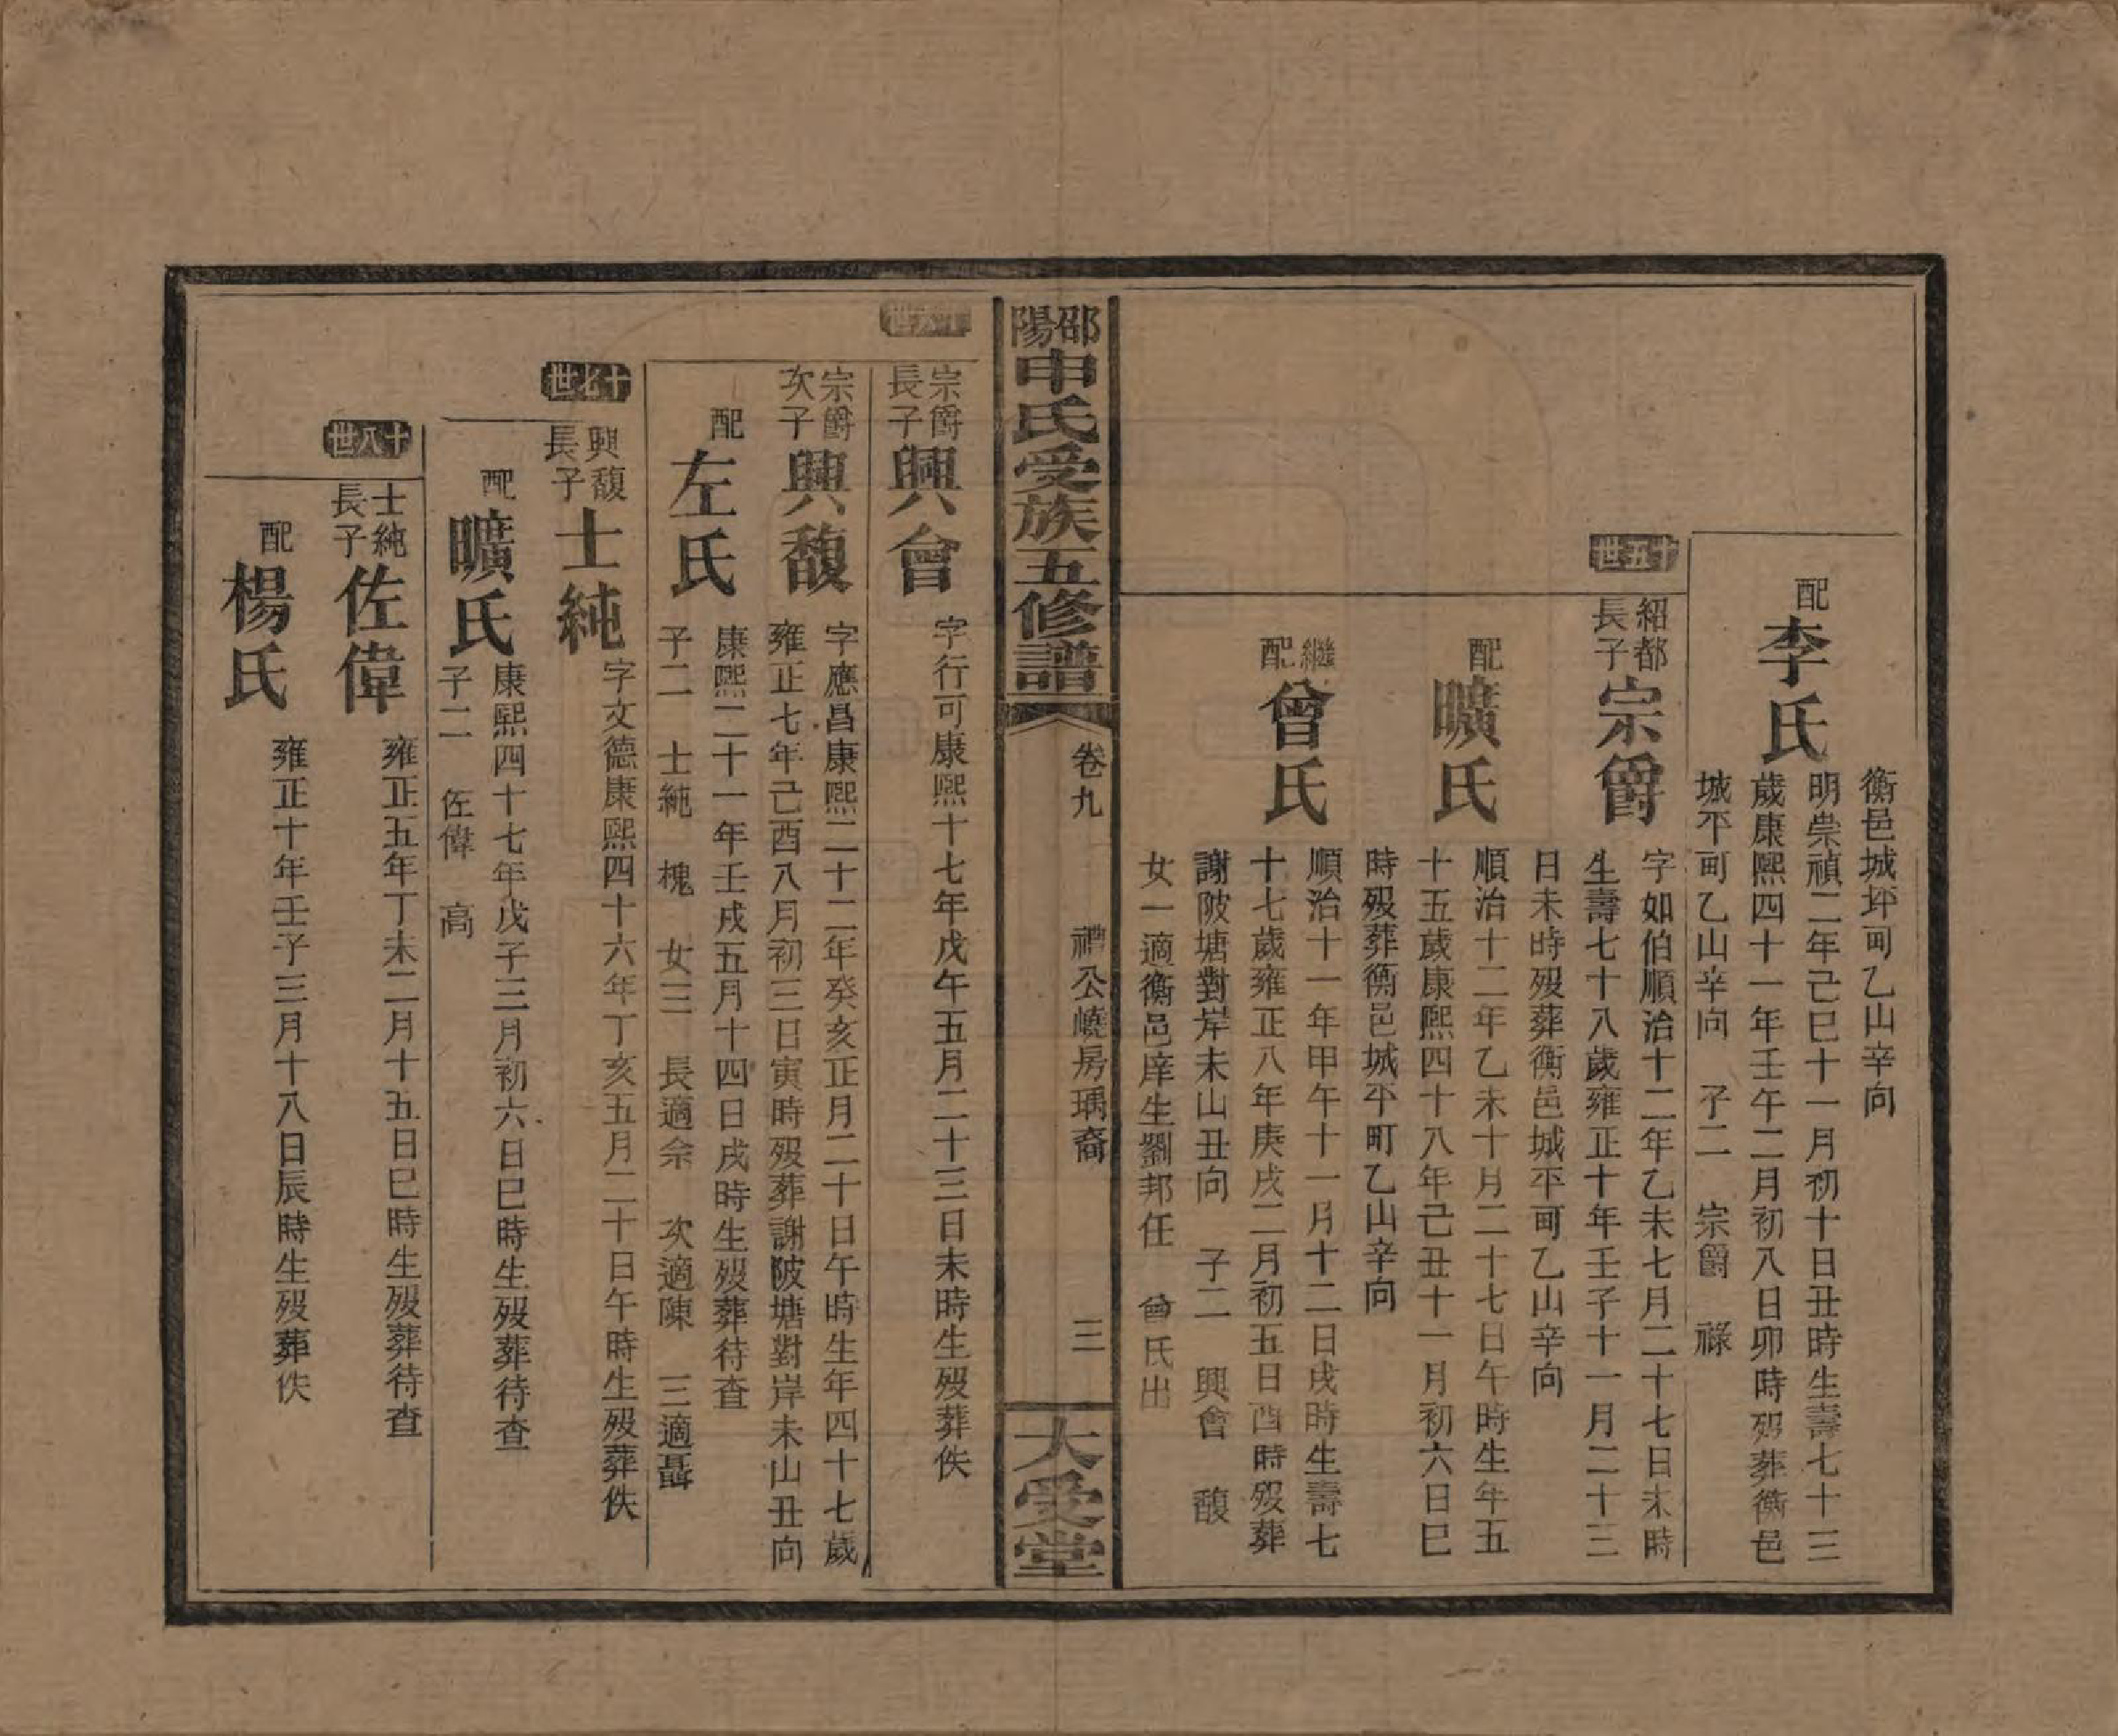 衡邑城坪甼乙山辛向
配李氏
明崇禎二年己巳十一月初十日丑時生壽七十三
歲康熙四十一年壬午二月初八日卯時歿葬衡邑
城平甼乙山辛向 子二 宗爵 祿
十五世
紹都長子宗爵
字如伯順治十二年乙未七月二十七日未時
生壽七十八歲雍正十年壬子十一月二十三
日未時歿葬衡邑城平甼乙山辛向
配曠氏
順治十二年乙未十月二十七日午時生年五
十五歲康熙四十八年己丑十一月初六日巳
時歿葬衡邑城平町乙山辛向
繼配曾氏
順治十一年甲午十一月十二日戌時生壽七
十七歲雍正八年庚戌二月初五日酉時歿葬
謝陂塘對岸未山丑向 子二 興會 馥
女一適衡邑庠生劉邦任 曾氏出
邵陽申氏受族五修譜
卷九 禮公嶢房瑀裔 三
大受堂
十六世
宗爵長子興會
字行可康熙十七年戊午五月二十三日未時生歿葬佚
宗爵次子興馥
字應昌康熙二十二年癸亥正月二十日午時生年四十七歲
雍正七年己酉八月初三日寅時歿葬謝陂塘對岸未山丑向
配左氏
康熙二十一年壬戌五月十四日戌時生歿葬待查
子二 士純 槐 女三 長適佘 次適陳 三適聶
十七世
興馥長子士純
字文德康熙四十六年丁亥五月二十日午時生歿葬佚
配曠氏
康熙四十七年戊子三月初六日巳時生歿葬待查
子二 佐偉 高
十八世
士純長子佐偉
雍正五年丁未二月十五日巳時生歿葬待查
配楊氏
雍正十年壬子三月十八日辰時生歿葬佚